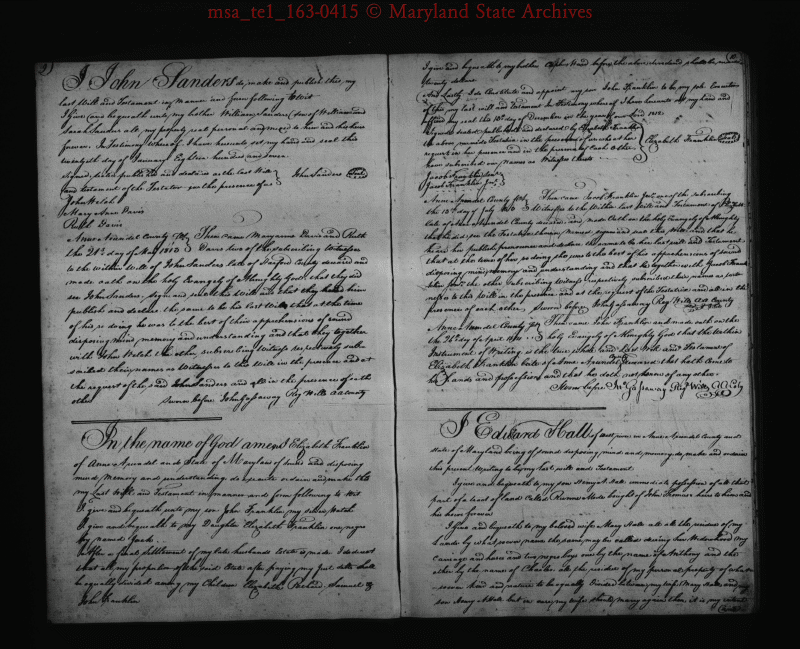 msa_te1_163-0415 © Maryland State Archives
I John Sanders do make and publish this my
last Will and Testament in Manner and form following to Wit
I give and bequeath unto my brother William Sanders son of William and
Sarah Sanders all my property real personal and mixed to him and his heirs
forever. In Testimony whereof I have hereunto set my hand and seal this
twentyeth day of January Eighteen hundred and seven
signed, sealed published and declared as the last Will
and testament of the Testator in the presence of us
John Sanders
John Welch
Mary Ann Davis
Ruth Davis
Anne Arundel County Then came Maryanne Davis and Ruth
the 21st day of May 1810 Davis two of the subscribing Witnesses
to the within Will of John Sanders late of County deceased and
made oath on the holy Evangely of Almighty God that they did
see John Sanders sign and seal this Will and that they heard him
publish and declare the same to be his last Will that at the time
of his so doing he was to the best of their apprehensions of sound
disposing mind, memory and understanding and that they together
with John Welch the other subscribing Witness respectively sub
scribed their names as Witnesses to this Will in the presence and at
the request of the said John Sanders and all in the presence of each
other Sworn before John Gassaway Reg Wills AA County
In the name of God amen I Elizabeth Franklin
of Anne Arundel and State of Maryland of sound and disposing
mind Memory and understanding do execute ordain and make this
my Last Will and Testament in manner and form following to Wit
I give and bequeath unto my son John Franklin my silver Watch
I give and bequeath to my Daughter Elizabeth Franklin one negro
by name
after a final settlement of my late husbands Estate is made I desire
that all my proportion of the said Estate after paying my Just debts shall
be equally divided among my Children Elizabeth Samuel &
John Franklin
I give and bequeath to my brother before the above dividend shall be made
twenty dollars
And Lastly I do Constitute and appoint my son John Franklin to be my sole Executor
of this my last will and Testament In Testimony whereof I have hereunto set my hand and
affixed my seal this 18th day of December in the year of our Lord
Signed sealed published and declared by Elizabeth Franklin
the above named Testatrix in the presence of us who at her
request in her presence and in the presence of each other
have subscribed our names as Witnesses thereto
Elizabeth Franklin
Jacob Franklin
Jacob Franklin Jr
Anne Arundel County Then came Jacob Franklin Jr one of the subscribing
the 13th day of July 1810 Witnesses to the Within last Will and Testament of
late of Anne Arundel County deceased and made Oath on the holy Evangely of Almighty
God that he did see the Testatrix therein Named sign and seal this Will and that he
heard her publish pronounce and declare the same to be her last will and Testament
that at the time of her so doing she was to the best of his apprehension of sound
disposing mind memory and understanding and that he together with Jacob Franklin
the other Subscribing Witness respectively subscribed their names as wit
nesses to this Will in the presence and at the request of the Testatrix and all in the
presence of each other Sworn before John Gassaway Reg Wills AA County
Anne Arundel County Then came John Franklin and made oath on the
holy Evangely of Almighty God that the Within
Instrument of Writing is the true & whole last Will and Testament of
Elizabeth Franklin late of Anne Arundel deceased that hath Come to
his hands and possession and that he doth not know of any other
Sworn before Jno Gassaway Reg Wills AA County
I Edward Hall of in Anne Arundel County and
State of Maryland being of sound disposing mind and memory do make and ordain
this present Writing to be my last will and Testament
I give and bequeath to my son Henry A Hall immediate possession of all that
part of a tract of land Called bought of John Thomas here to him and
his heirs forever
I give and bequeath to my beloved wife Mary Hall all the residue of my
lands by whatsoever name the same may be called during her Widowhood My
Carriage and horses and two negro boys one by the name of Anthony and the
other by the name of Charles all the residue of my personal property of what
soever kind and nature to be equally divided between my wife Mary Hall and my
son Henry A Hall but in case my wife should marry again then it is my